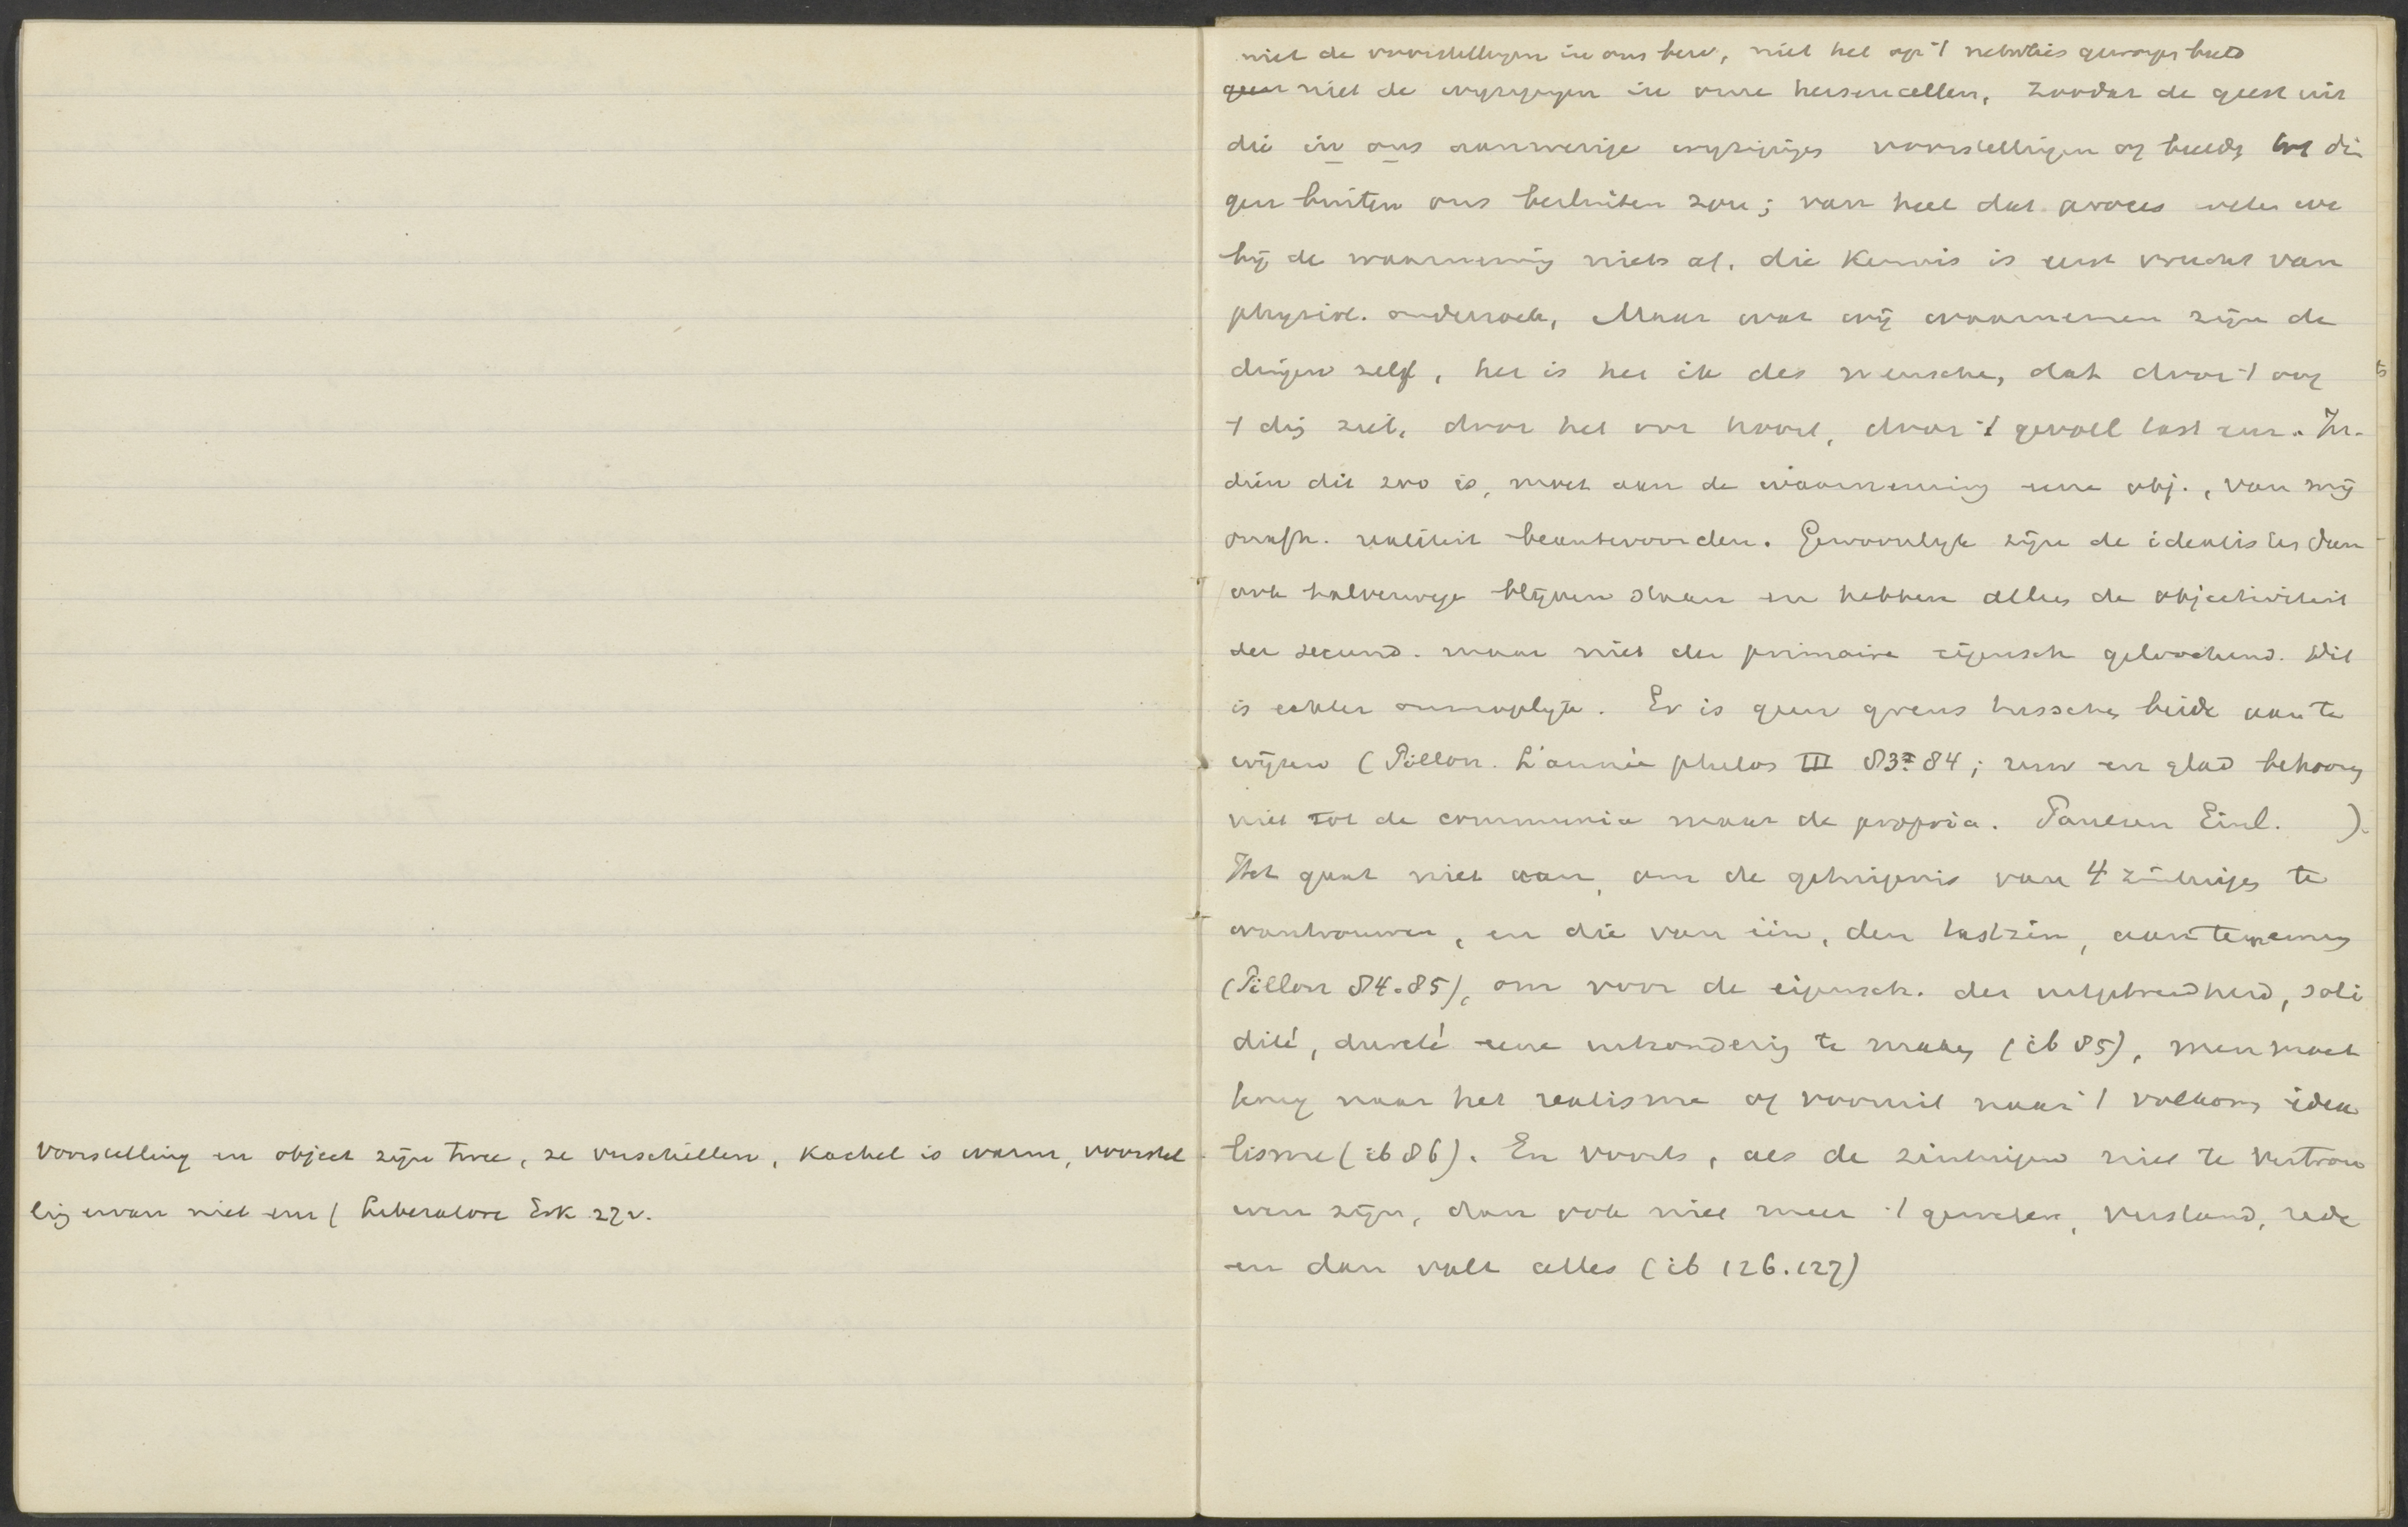 voorstelling en object zijn twee, ze verschillen, kachel is warm, voorstel
ling ervan niet enz ( Liberatore Erk 27v.
niet de voorstellingen in ons bew, niet het op 't netvlies geworpen beeld
geen niet de wijzigingen in onze hersencellen, zoodat de geest uit
die in ons aanwezige wijzigingen voorstellingen of beelden tot din
gen buiten ons besluiten zou; van heel dat proces weten we
bij de waarneming niets af. die kennis is eerst vrucht van
physiol. onderzoek, Maar wat wij waarnemen zijn de
dingen zelf, het is het ik des menschen, dat door 't oog
't ding ziet, door het oor hoort, door 't gevoel tast enz. In-
dien dit zoo is, moet aan de waarneming eene obj., van mij
onafh. realiteit beantwoorden. Gewoonlijk zijn de idealisten dan
ook halverwege blijven staan en hebben alleen de objectiviteit
der secund. maar niet der primaire eigensch geloochend. Dit
is echter onmogelijk. Er is geen grens tusschen beide aan te
wijzen (Pillon. L'année philos III 83 84; ruw en glad behooren
niet tot de communia maar de propria. Paulsen Einl. ).
Het gaat niet aan, om de getuigenis van 4 zintuigen te
wantrouwen, en die van één, den tastzin, aan te nemen
(Pillon 84.85), om voor de eigensch. der uitgebreidheid, soli
dité, dureté eene uitzondering te maken (ib 85), men moet
terug naar het realisme of vooruit naar 't volkomen idea
lisme (ib 86). En voorts, als de zintuigen niet te vertrou
wen zijn, dan ook niet meer 't geweten, verstand, rede
en dan valt alles (ib 126.127)